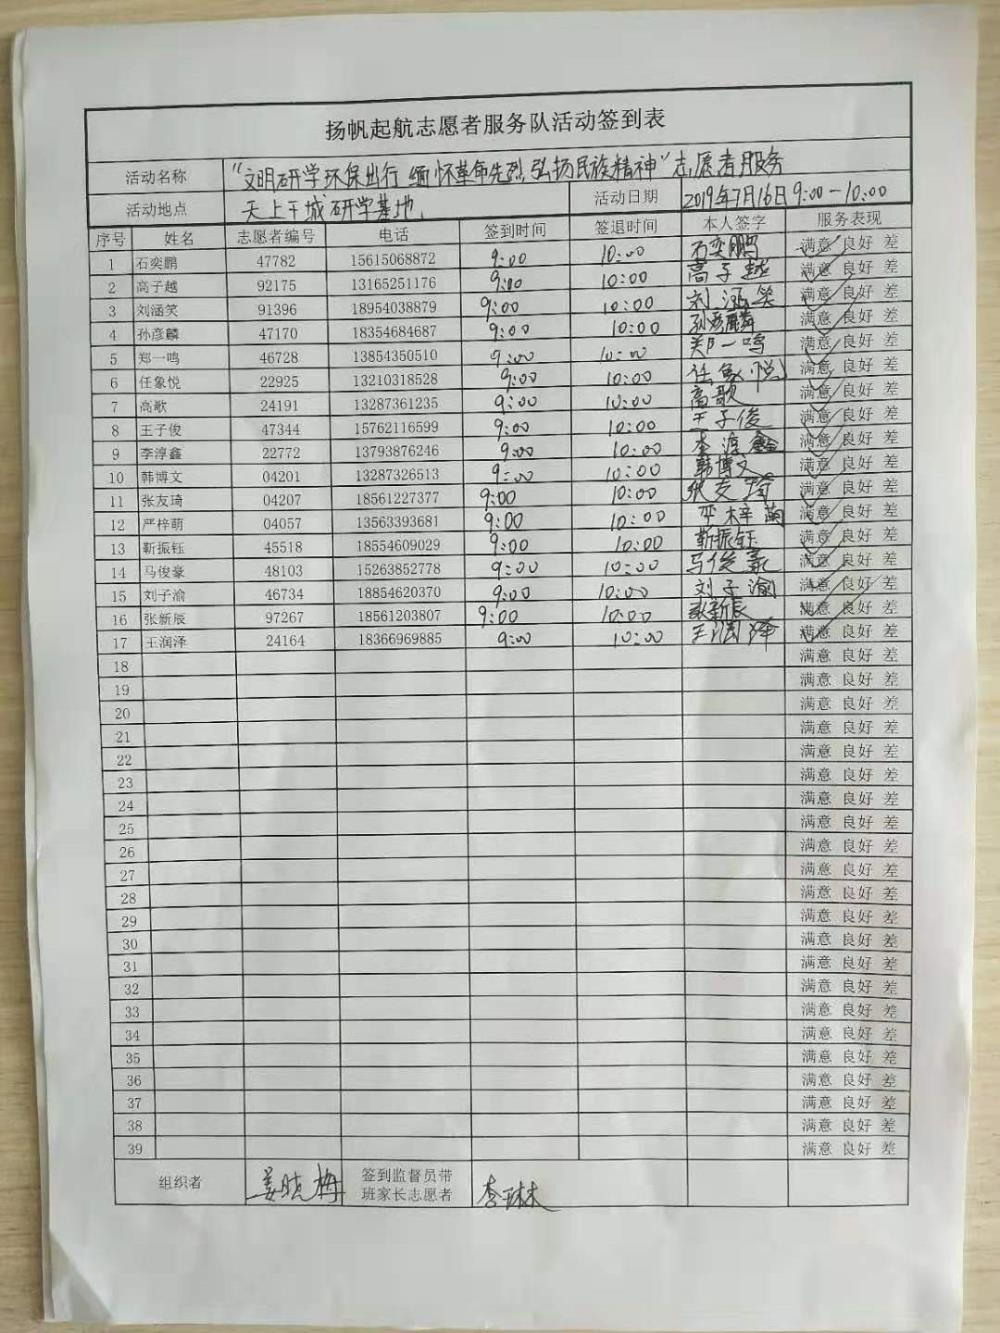 扬帆起航志愿者服务队活动签到表
活动名称 “文明研学环保出行 缅怀革命先烈 弘扬民族精神”志愿者服务
活动地点 天上王城研学基地 活动日期 2019年7月16日9:00-10:00
序号 姓名 志愿者编号 电话 签到时间 签退时间 本人签字 服务表现
1 石奕鹏 47782 15615068872 9:00 10:00 石奕鹏 满意 良好 差
2 高子越 92175 13165251176 9:00 10:00 高子越 满意 良好 差
3 刘涵笑 91396 18954038879 9:00 10:00 刘涵笑 满意 良好 差
4 孙彦麟 47170 18354684687 9:00 10:00 孙彦麟 满意 良好 差
5 郑一鸣 46728 13854350510 9:00 10:00 郑一鸣 满意 良好 差
6 任象悦 22925 13210318528 9:00 10:00 任象悦 满意 良好 差
7 高歌 24191 13287361235 9:00 10:00 高歌 满意 良好 差
8 王子俊 47344 15762116599 9:00 10:00 王子俊 满意 良好 差
9 李淳鑫 22772 13793876246 9:00 10:00 李淳鑫 满意 良好 差
10 韩博文 04201 13287326513 9:00 10:00 韩博文 满意 良好 差
11 张友琦 04207 18561227377 9:00 10:00 张友琦 满意 良好 差
12 严梓萌 04057 13563393681 9:00 10:00 严梓萌 满意 良好 差
13 靳振钰 45518 18554609029 9:00 10:00 靳振钰 满意 良好 差
14 马俊豪 48103 15263852778 9:00 10:00 马俊豪 满意 良好 差
15 刘子渝 46734 18854620370 9:00 10:00 刘子渝 满意 良好 差
16 张新辰 97267 18561203807 9:00 10:00 张新辰 满意 良好 差
17 王润泽 24164 18366969885 9:00 10:00 王润泽 满意 良好 差
18 满意 良好 差
19 满意 良好 差
20 满意 良好 差
21 满意 良好 差
22 满意 良好 差
23 满意 良好 差
24 满意 良好 差
25 满意 良好 差
26 满意 良好 差
27 满意 良好 差
28 满意 良好 差
29 满意 良好 差
30 满意 良好 差
31 满意 良好 差
32 满意 良好 差
33 满意 良好 差
34 满意 良好 差
35 满意 良好 差
36 满意 良好 差
37 满意 良好 差
38 满意 良好 差
39 满意 良好 差
组织者 姜晓梅 签到监督员带
班家长志愿者 李琳